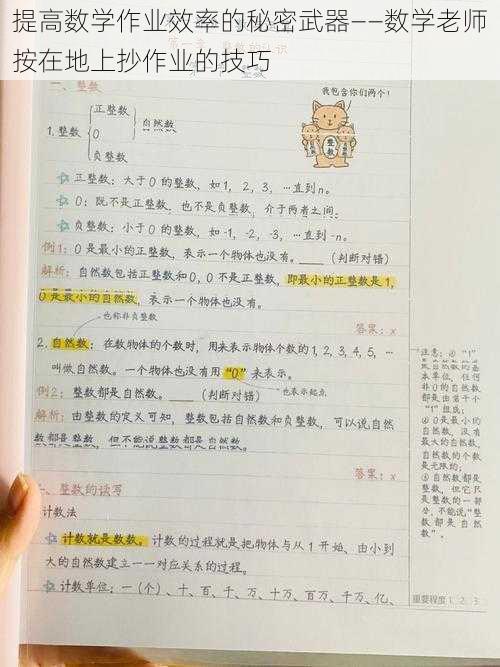 提高数学作业效率的秘密武器——数学老师
按在地上抄作业的技巧
一、整数
我包含你们两个!
1.整数
正整数
0
自然数
负整数
整数
正整数:大于0的整数,如1,2,3,…直到n。
0:既不是正整数,也不是负整数,介于两者之间;
负整数:小于0的整数,如-1,-2,-3,…直到-n。
例1:0是最小的正整数,表示一个物体也没有。____(判断对错)
解析:自然数包括正整数和0,0不是正整数,即最小的正整数是1,
0是最小的自然数,表示一个物体也没有。
也称非负整数
答案:x
2.自然数:在数物体的个数时,用来表示物体个数的1,2,3,4,5,…
叫做自然数。一个物体也没有用“0”来表示。
也表示起点
例2:整数都是自然数。____(判断对错)
解析:由整数的定义可知,整数包括自然数和负整数,可以说自然
数都是整数,但不能说整数都是自然数
答案:x
注意:①“1”
是自然数的基
本单位,任何
非0的自然数
都是由若干个
“1”组成;
②0是最小的
自然数,没有
最大的自然数,
自然数的个数
是无限的;
③自然数都是
整数,但它只
是整数的一部
分,不能说“整
数都是自然
数”。
、整数的读写
计数法
计数就是数数,计数的过程就是把物体与从1开始、由小到
大的自然数建立一一对应关系的过程。
计数单位:一(个)、十、百、千、万、十万、百万、千万、亿、
重要程度1、2、3